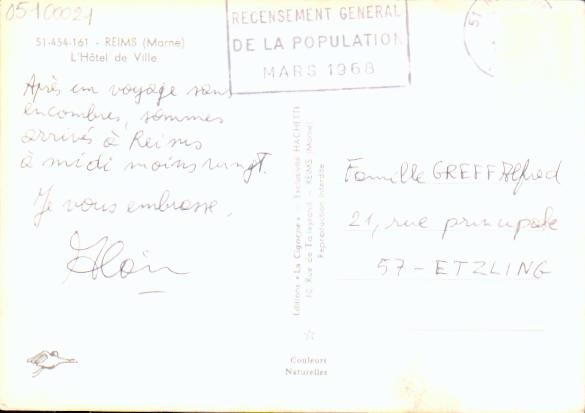 05100021
51-454-161 - REIMS (Marne)
L'Hôtel de Ville
RECENSEMENT GENERAL
DE LA POPULATION
MARS 1968
51
Après un voyage sans
encombres, sommes
arrivés à Reims
à midi moins vingt.
Je vous embrasse,
Alain
Editions « La Cigogne » Exclusivité HACHETTE
10, Rue de Talleyrand - REIMS (Marne)
Reproduction interdite
Couleurs
Naturelles
Famille GREFF Alfred
21, rue principale
57 - ETZLING